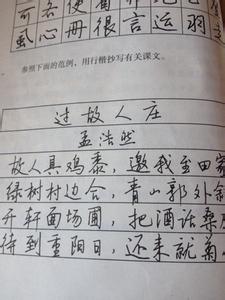 心 册 很 言 运 羽
参照下面的范例、用行楷抄写有关课文。
过故人庄
孟浩然
故人具鸡黍，邀我至田家
绿树村边合，青山郭外斜
开轩面场圃，把酒话桑
待到重阳日，还来就菊